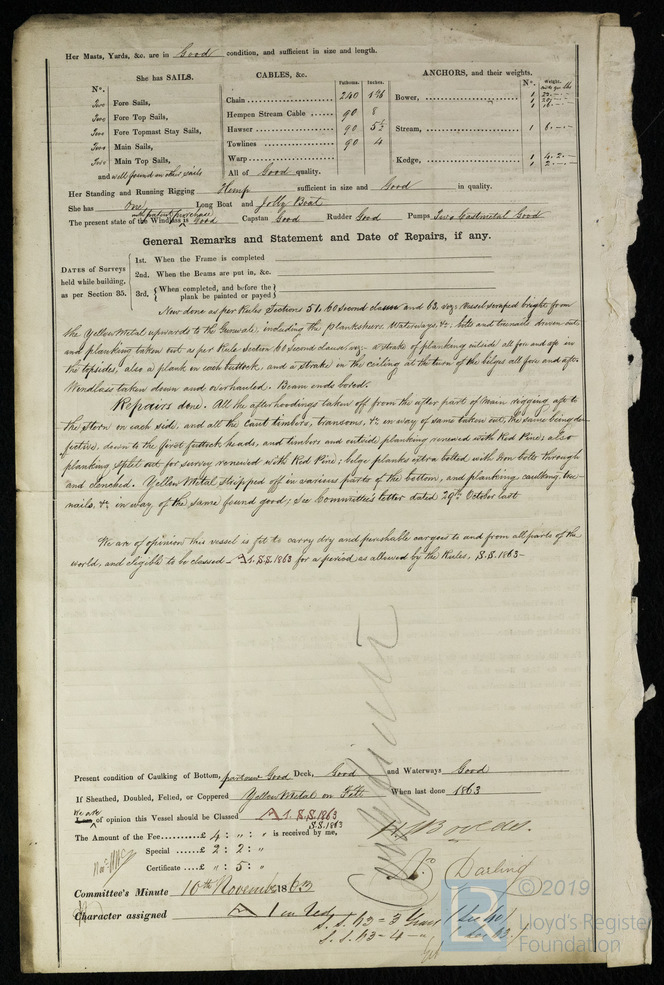 Her Masts, Yards, &c. are in Good condition, and sufficient in size and length.
She has SAILS.
No.
Two Fore Sails,
Two Fore Top Sails,
Two Fore Topmast Stay Sails,
Two Main Sails,
Two Main Top Sails,
and well found in other sails
CABLES, &c.
Fathoms. Inches.
Chain 240 1 7/16
Hempen Stream Cable 90 8
Hawser 90 5½
Towlines 90 4
Warp
All of Good quality.
ANCHORS, and their weights.
No. Weight.
Bower,
Stream, 1 6 . - . -
Kedge, 1 4 . 2 . -
1 2 . - . -
Her Standing and Running Rigging Hemp sufficient in size and Good in quality.
She has one Long Boat and Jolly Boat
with patent purchase
The present state of the Windlass is Good Capstan Good Rudder Good Pumps Two Castmetal Good
General Remarks and Statement and Date of Repairs, if any.
DATES of Surveys held while building, as per Section 35.
1st. When the Frame is completed
2nd. When the Beams are put in, &c.
3rd. { When completed, and before the plank be painted or payed }
Now done as per Rules Sections 51. 60 Second clause and 63, viz; Vessel scraped bright from
the Yellow Metal upwards to the Gunwale, including the planksheers, Waterways &c; bolts and treenails driven out
and planking taken out as per Rule Section 60 Second clause viz – a strake of planking outside all fore and aft in
the topsides, also a plank in each buttock, and a strake in the ceiling at the turn of the bilges all fore and aft.
Windlass taken down and overhauled. Beam ends bored.
Repairs done. All the afterhoodings taken off from the after part of Main rigging aft to
the Stern on each side, and all the Cant timbers, transoms, &c in way of same taken out, the same being de
fective, down to the first futtock heads, and timbers and outside planking renewed with Red Pine; also
planking split out for survey renewed with Red Pine; bilge planks extra bolted with Iron bolts through
and clenched. Yellow Metal stripped off in various parts of the bottom, and planking caulking tree
nails, &c in way of the same found good; see Committee's letter dated 29th October last
We are of opinion this vessel is fit to carry dry and perishable cargoes to and from all parts of the
world, and eligible to be classed A 1. S.S. 1863 for a period as allowed by the Rules, S.S. 1863 –
Present condition of Caulking of Bottom, part now Good Deck, Good and Waterways Good
If Sheathed, Doubled, Felted, or Coppered Yellow Metal on Felt When last done 1863
We are
of opinion this Vessel should be Classed A 1. S.S. 1863
S.S. 1863
The Amount of the Fee £ 4 : " : " is received by me,
Special £ 2 : 2 : "
Certificate £ " : 5 : "
Darling
Committee's Minute 10th November 1863
Character assigned A 1 in Red
©2019
Lloyd's Register
Foundation
LR